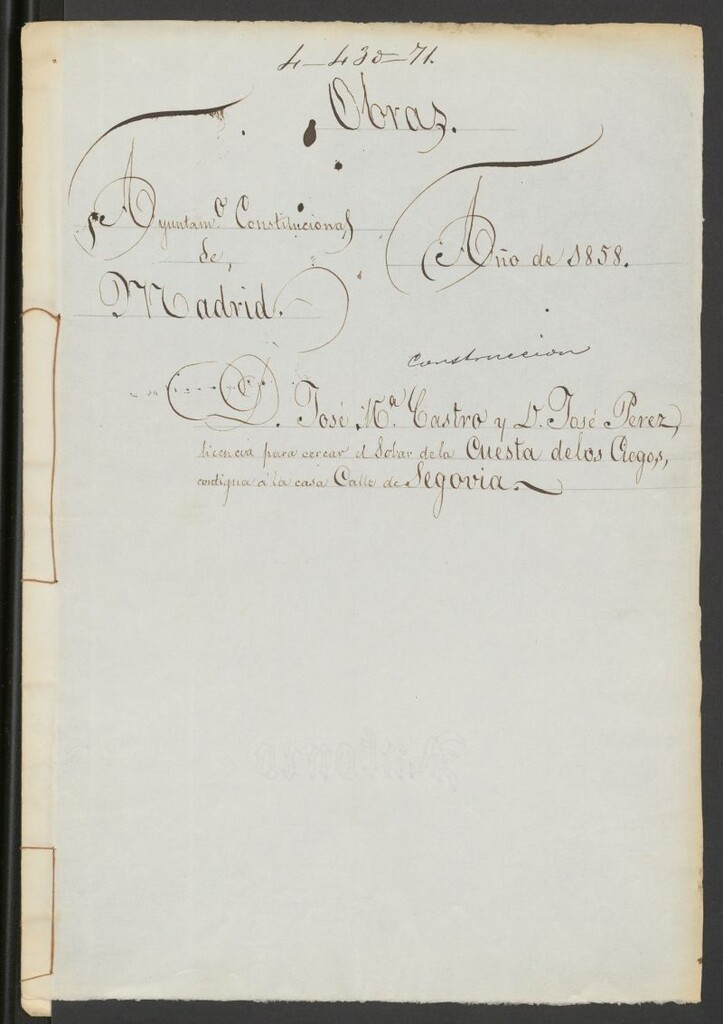 4-430-71.
Obras.
Ayuntam.º Constitucional
de
Madrid.
Año de 1858.
Construccion
D. José M.ª Castro y D. José Perez,
licencia para cercar el Solar de la Cuesta de los Ciegos,
contigua á la casa Calle de Segovia.